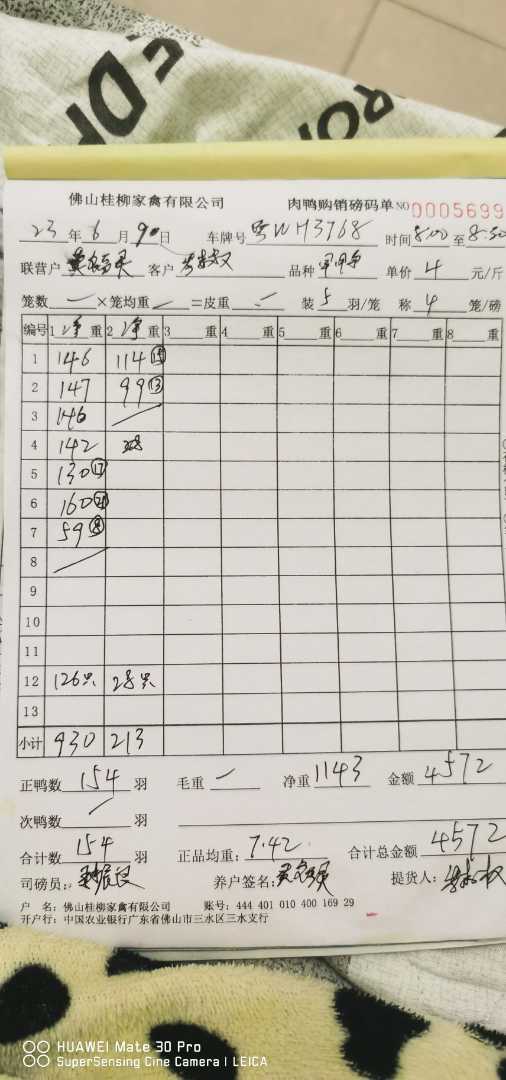 佛山桂柳家禽有限公司 肉鸭购销磅码单 NO 0005699
23 年 6 月 9 日 车牌号 粤WH3768 时间 8:00 至 8:30
联营户 客户 品种 单价 4 元/斤
笼数 一 × 笼均重 一 = 皮重 一 装 5 羽/笼 称 4 笼/磅
编号 1 净 重 2 净 重 3 重 4 重 5 重 6 重 7 重 8 重
1 146 114 ⑮
2 147 99 ⑬
3 146
4 142
5 130 ⑰
6 160 ㉑
7 59 ⑧
8
9
10
11
12 126只 28只
13
小计 930 213
正鸭数 154 羽 毛重 一 净重 1143 金额 4572
次鸭数 羽
合计数 154 羽 正品均重: 7.42 合计总金额 4572
司磅员: 养户签名: 提货人:
户 名: 佛山桂柳家禽有限公司 账号: 444 401 010 400 169 29
开户行: 中国农业银行广东省佛山市三水区三水支行
HUAWEI Mate 30 Pro
SuperSensing Cine Camera | LEICA